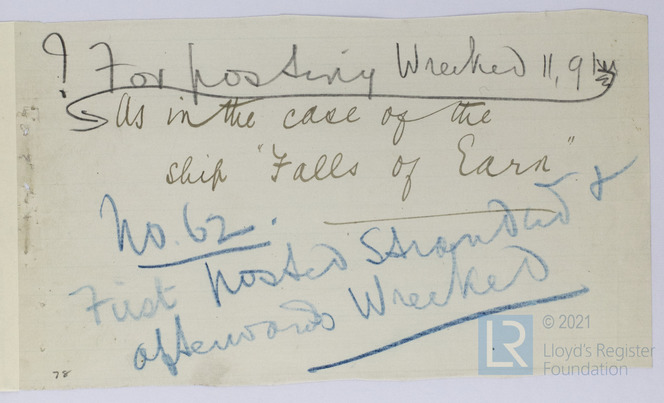 ? For posting Wrecked 11,91
As in the case of the
ship "Falls of Earn"
No. 62.
First posted Stranded &
afterwards Wrecked
78
LR © 2021
Lloyd's Register
Foundation